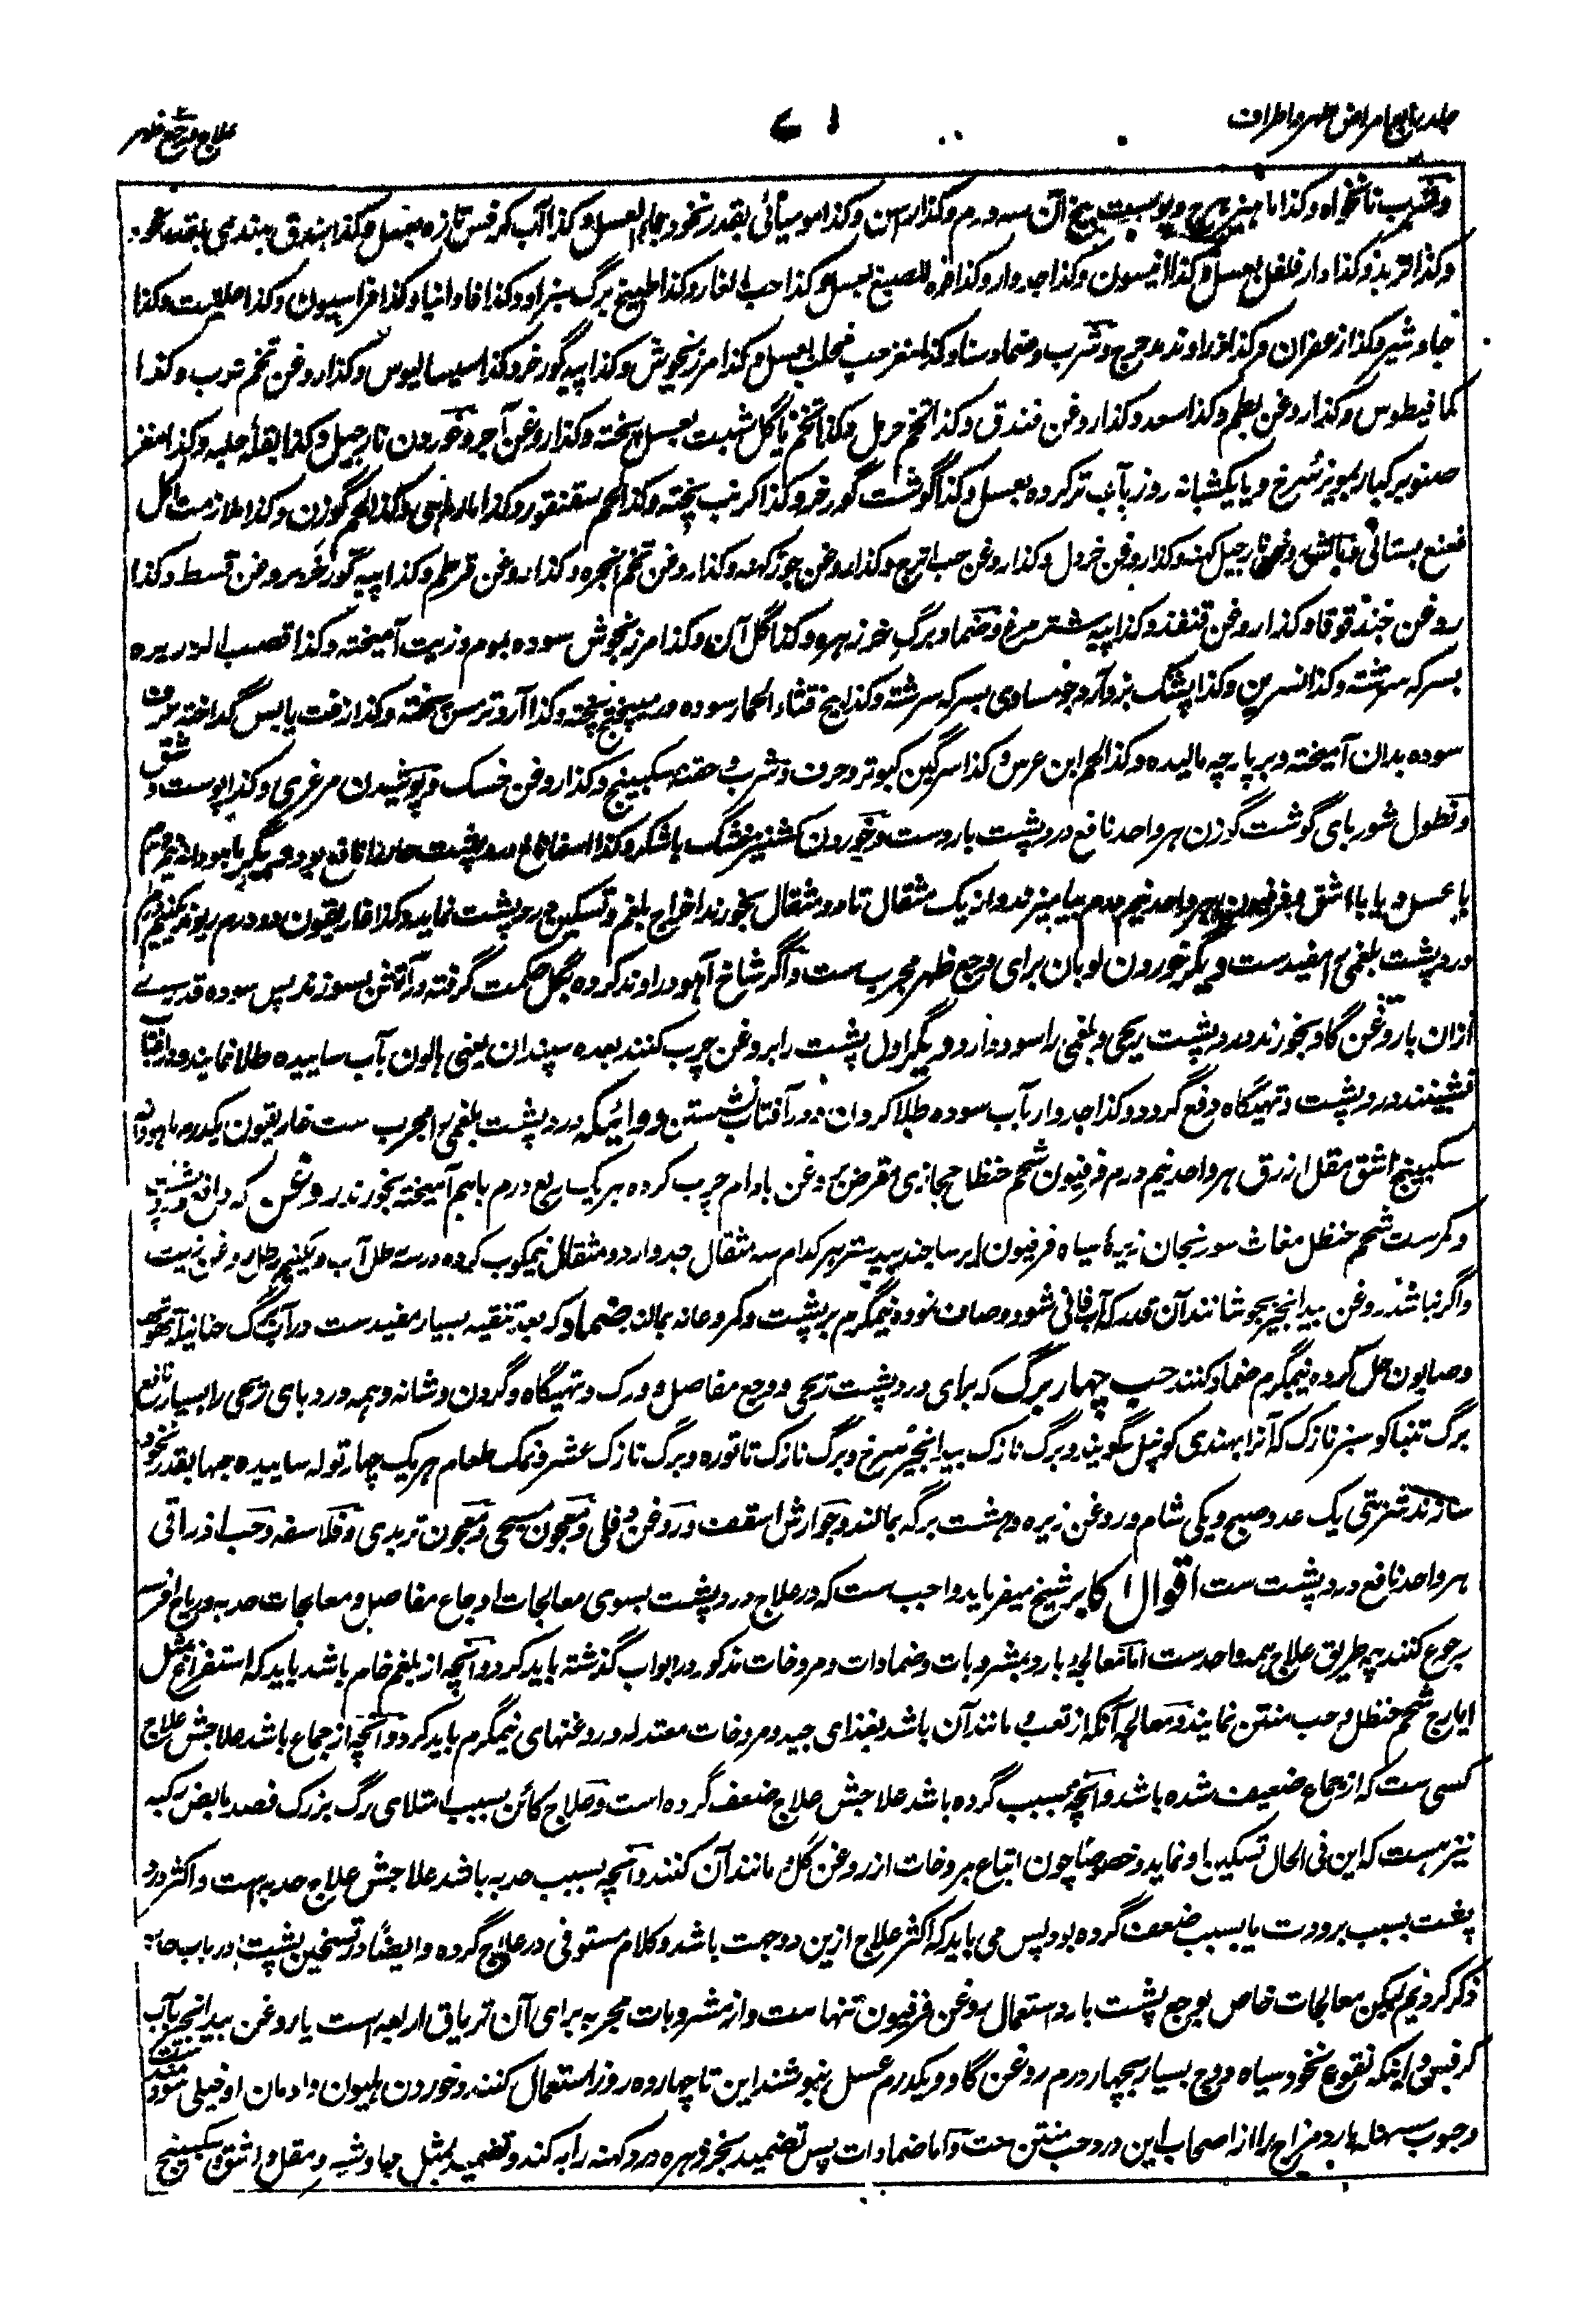 جلد رابع امراض ظهر و اطراف
علاج وجع ظهر
و شرب نانخواه و کذا ماهیزهرج و پوست بیخ آن سه درم و کذا راسن و کذا مومیائی بقدر نخود بماء العسل و کذا آب کرفس تازه بعسل و کذا بندق هندی بقدر نخود
و کذا تربد و کذا دار فلفل بعسل و کذا انیسون و کذا جدوار و کذا بعسل و کذا حب الغار و کذا طبیخ برگ سبز او و کذا فاوانیا و کذا فراسیون و کذا حلتیت و کذا
جاوشیر و کذا زعفران و کذا زراوند مدحرج و شرب و ضماد سنا و کذا مغز حب محلب بعسل و کذا مرزنجوش و کذا پیه گورخر و کذا سیسالیوس و کذا روغن تخم ترب و کذا
کمافیطوس و کذا روغن بطم و کذا سعد و کذا روغن فندق و کذا تخم حرمل و کذا تخم یا گل شبت بعسل پخته و کذا روغن آجر و خوردن نارجیل و کذا بقلهٔ حلبه و کذا مغز
صنوبر کبار بمویز سرخ و یا یکشبانه روز بآب تر کرده بعسل و کذا گوشت گورخر و کذا کرنب پخته و کذا لحم سقنقور و کذا مارماهی و کذا لحم گوزن و کذا ملازمت اکل
نعنع بستانی و مالش روغن نارجیل کهنه و کذا روغن خردل و کذا روغن حب اترج و کذا روغن جوز کهنه و کذا روغن تخم انجره و کذا روغن قرطم و کذا پیه گورخر بروغن قسط و کذا
روغن جندقوقا و کذا روغن قنفذ و کذا پیه شترمرغ و ضماد برگ خرزهره و کذا گل آن و کذا مرزنجوش سوده بموم و زیت آمیخته و کذا قصب الذریره
بسرکه سرشته و کذا نسرین و کذا پشک بز و آرد جو مساوی بسرکه سرشته و کذا بیخ قثاء الحمار سوده در میپختج پخته و کذا آرد ترمس پخته و کذا زفت یابس گداخته حرف
سوده بدان آمیخته و بر پارچه مالیده و کذا لحم ابن عرس و کذا سرگین کبوتر و حرف و شرب و حقنه سکبینج و کذا روغن خسک و پوشیدن مرغزی و کذا پوست وشق
و نطول شوربای گوشت گوزن هر واحد نافع درد پشت بارد ست و خوردن کشنیز خشک با شکر و کذا اسفاناخ درد پشت حار را نافع بود دیگر ماهودانه نیم درم
با عسل و یا با اشق و فرفیون هر واحد نیم درم بیامیزند و از یک مثقال تا دو مثقال بخورند اخراج بلغم و تسکین درد پشت نماید و کذا غاریقون دو درم
درد پشت بلغمی را مفید ست دیگر خوردن لوبان برای وجع ظهر مجرب ست و اگر شاخ آهو در اوند کرده بگل حکمت گرفته در آتش بسوزند پس سوده قدری
ازان با روغن گاو بخورند درد پشت ریحی و بلغمی را سود دارد دیگر اول پشت را بروغن چرب کنند بعده سپندان یعنی هالون بآب ساییده طلا نمایند و در آفتاب
نشینند درد پشت و تهیگاه دفع گردد و کذا جدوار بآب سوده طلا کردن و در آفتاب نشستن دوائیکه درد پشت بلغمی را مجرب ست غاریقون یکدرم ماهودانه
سکبینج اشق مقل ازرق هر واحد نیم درم فرفیون شحم حنظل حجازی مقرض بروغن بادام چرب کرده هر یک ربع درم باهم آمیخته بخورند روغن که دافع درد پشت
و کمر ست شحم حنظل مغاث سورنجان زیره سیاه فرفیون ایرسا جندبیدستر هر کدام سه مثقال جدوار دو مثقال نیمکوب کرده در سه رطل آب و یکنیم رطل روغن زیت
و اگر نباشد روغن بیدانجیر بجوشانند آن قدر که آب فانی شود و صاف نموده نیمگرم بر پشت و کمر و عانه بمالند ضماد که بعد تنقیه بسیار مفید ست در آب برگ حنا
و صابون حل کرده نیمگرم ضماد کنند حب چهار برگ که برای درد پشت ریحی و وجع مفاصل و ورک و تهیگاه و گردن و شانه و همه دردهای ریحی را بسیار نافع
برگ تنباکو سبز نازک که آنرا بهندی کونپل گویند و برگ نازک بیدانجیر سرخ و برگ نازک تاتوره و برگ نازک عشر و نمک طعام هر یک چهار توله ساییده حبها بقدر نخود
سازند شربتی یک عدد صبح و یکی شام و روغن زیره و هشت برگه بمالند و جوارش اسقف و روغن دفلی و معجون مسیحی و معجون تربدی و فلاسفه و حب اذراقی
هر واحد نافع درد پشت ست اقوال اکابر شیخ میفرماید واجب ست که در علاج درد پشت بسوی معالجات اوجاع مفاصل و معالجات حدبه و ریاح افرسه
رجوع کنند چه طریق علاج همه واحد ست اما معالجه بارد بمشروبات و ضمادات و مروخات مذکور در ابواب گذشته باید کرد و آنچه از بلغم خام باشد باید که استفراغ بمثل
ایارج شحم حنظل و حب منتن نمایند و معالجه آنکه از تعب و مانند آن باشد بغذای جید و مروخات معتدله و روغنهای نیمگرم باید کرد و آنچه از جماع باشد علاجش علاج
کسی ست که از جماع ضعیف شده باشد و آنچه بسبب گرده باشد علاجش علاج ضعف گرده است و علاج کائن بسبب امتلای رگ بزرگ فصد مابض رکبه
نیز هست که این فی الحال تسکین او نماید و خصوصاً چون اتباع بمروخات از روغن گل و مانند آن کنند و آنچه بسبب حدبه باشد علاجش علاج حدبه است و اکثر درد
پشت بسبب برودت یا بسبب ضعف گرده بود پس می باید که اکثر علاج ازین دو جهت باشد و کلام مستوفی در علاج گرده و ایضاً در تسخین پشت در باب
ذکر کردیم لیکن معالجات خاص بوجع پشت بارد استعمال روغن فرفیون تنها ست و از مشروبات مجربه برای آن تریاق اربعه است یا روغن بیدانجیر بآب
کرفس و اینکه نقوع نخود سیاه بسیار بچهار درم روغن گاو و یکدرم عسل بنوشند این تا چهارده روز استعمال کنند و خوردن هلیون و ادمان او خیلی مفید
و حبوب مسهله بارد مزاج را از اصحاب این درد حب منتن ست و اما ضمادات پس تضمید بخرفهره درد کهنه را به کند و تضمید بمثل جاوشیر و مقل و اشق و سکبینج